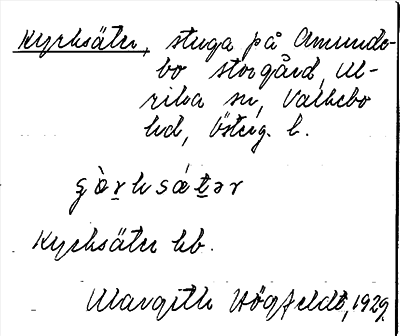 Kyrksäter, stuga på Amunde-
bo storgård, Ul-
rika sn, Valkebo
hd, Österg. l.
Kyrksäter hb.
Margith Högfeldt, 1929.